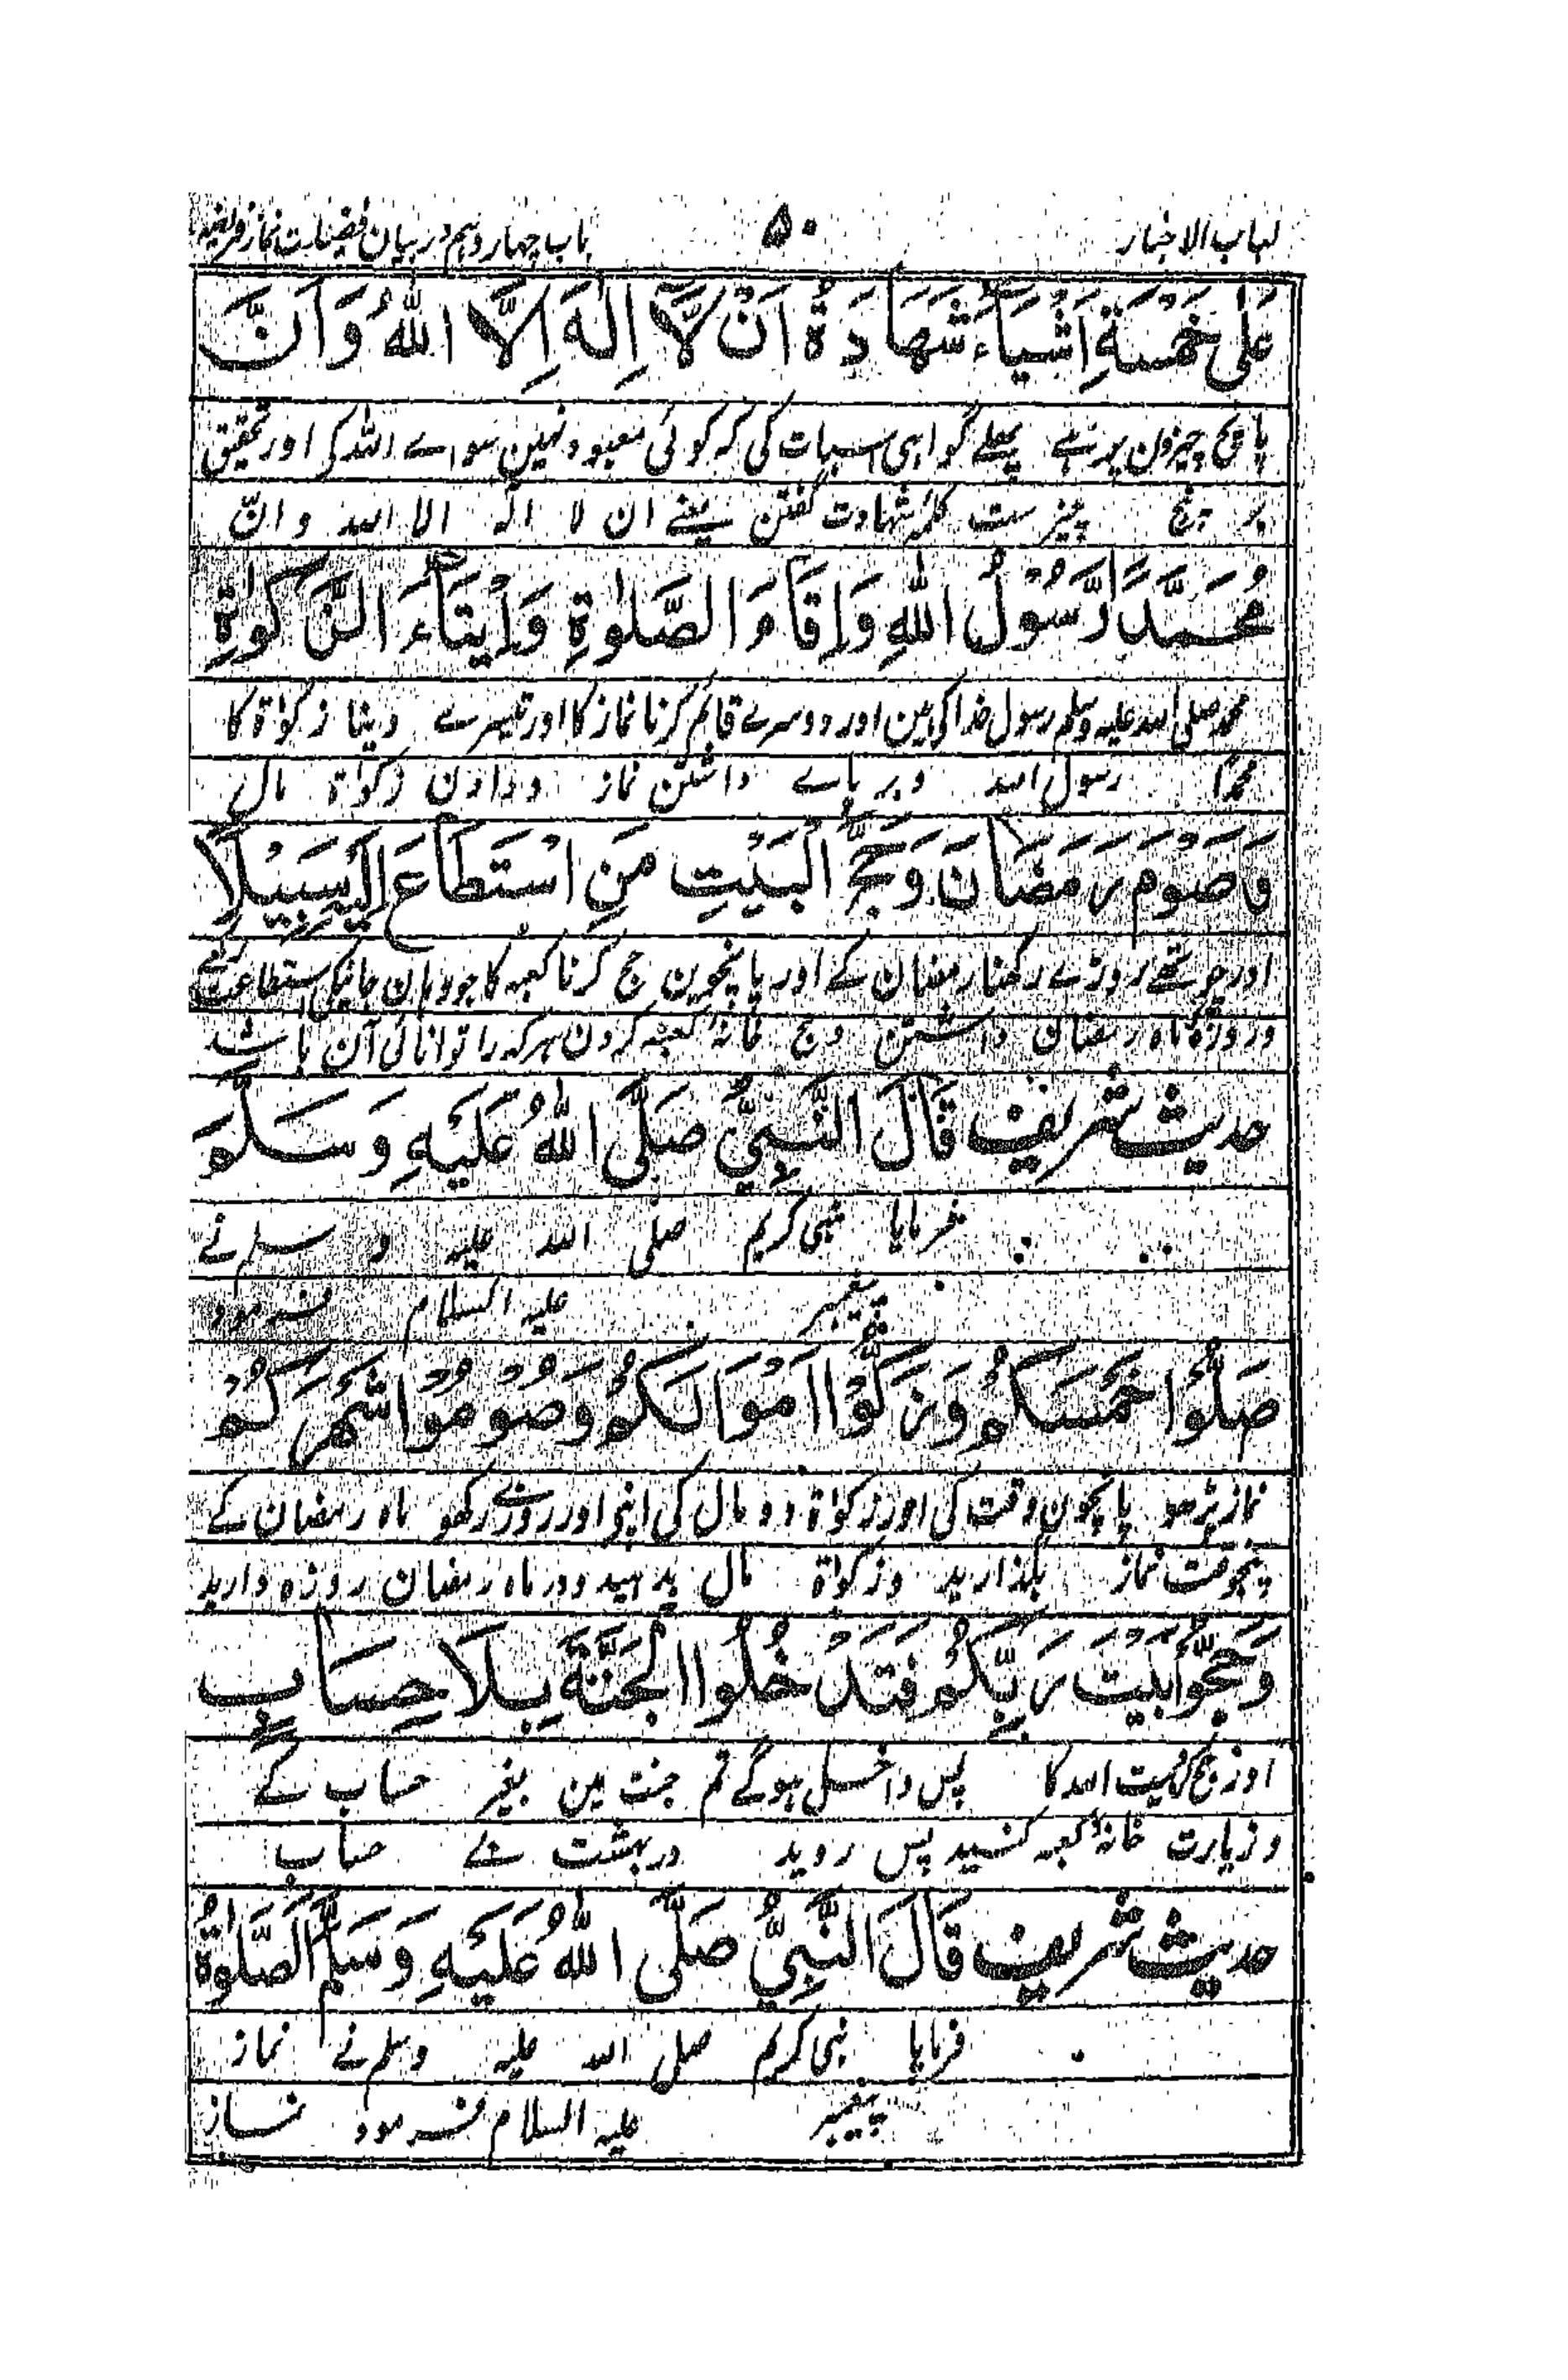 لباب الاخبار
۵۰
باب چہاردہم در بیان فضیلت نماز فریضہ
عَلٰی خَمْسَةِ اَشْیَآءَ شَهَادَةُ اَنْ لَّا اِلٰهَ اِلَّا اللّٰهُ وَاَنَّ
پانچ چیزون پر ہے پہلے گواہی اسبات کی کہ کوئی معبود نہین سواے اللہ کی اور تحقیق
بر پنج چیز ست کلمۂ شہادت گفتن یعنے ان لا الٰه الا الله و انّ
مُحَمَّدًا رَّسُوْلُ اللّٰهِ وَاِقَامَ الصَّلٰوةِ وَاِیْتَآءَ الزَّکٰوةِ
محمد صلی اللہ علیہ وسلم رسول خدا کی ہین اور دوسرے قائم کرنا نماز کا اور تیسرے دینا زکوٰة کا
محمدًا رسول الله وبر پاے داشتن نماز و دادن زکوٰة مال
وَصَوْمَ رَمَضَانَ وَحَجَّ الْبَیْتِ مَنِ اسْتَطَاعَ اِلَیْهِ سَبِیْلًا
اور چوتھے روزے رکھنا رمضان کے اور پانچوین حج کرنا کعبہ کا جو وہان جانیکی استطاعت رکھے
و روزۂ ماہ رمضان داشتن و حج خانۂ کعبہ کردن ہر کہ را توانائی آن باشد
حدیث شریف قَالَ النَّبِیُّ صَلَّی اللّٰهُ عَلَیْهِ وَسَلَّمَ
فرمایا نبی کریم صلی اللہ علیہ و سلم نے
پیغمبر علیہ السلام فرمود
صَلُّوْا خَمْسَکُمْ وَزَکُّوْا اَمْوَالَکُمْ وَصُوْمُوْا شَهْرَکُمْ
نماز پڑھو پانچون وقت کی اور زکوٰة دو مال کی اپنی اور روزے رکھو ماہ رمضان کے
پنجوقت نماز بگذارید وزکوٰة مال بدہید و در ماہ رمضان روزہ دارید
وَحَجُّوْا بَیْتَ رَبِّکُمْ فَتَدْخُلُوا الْجَنَّةَ بِلَا حِسَابٍ
اور حج کرو بیت اللہ کا پس داخل ہوگے تم جنت مین بغیر حساب کے
و زیارت خانۂ کعبہ کنید پس روید در بہشت بے حساب
حدیث شریف قَالَ النَّبِیُّ صَلَّی اللّٰهُ عَلَیْهِ وَسَلَّمَ اَلصَّلٰوةُ
فرمایا نبی کریم صلی اللہ علیہ وسلم نے نماز
پیغمبر علیہ السلام فرمود نماز